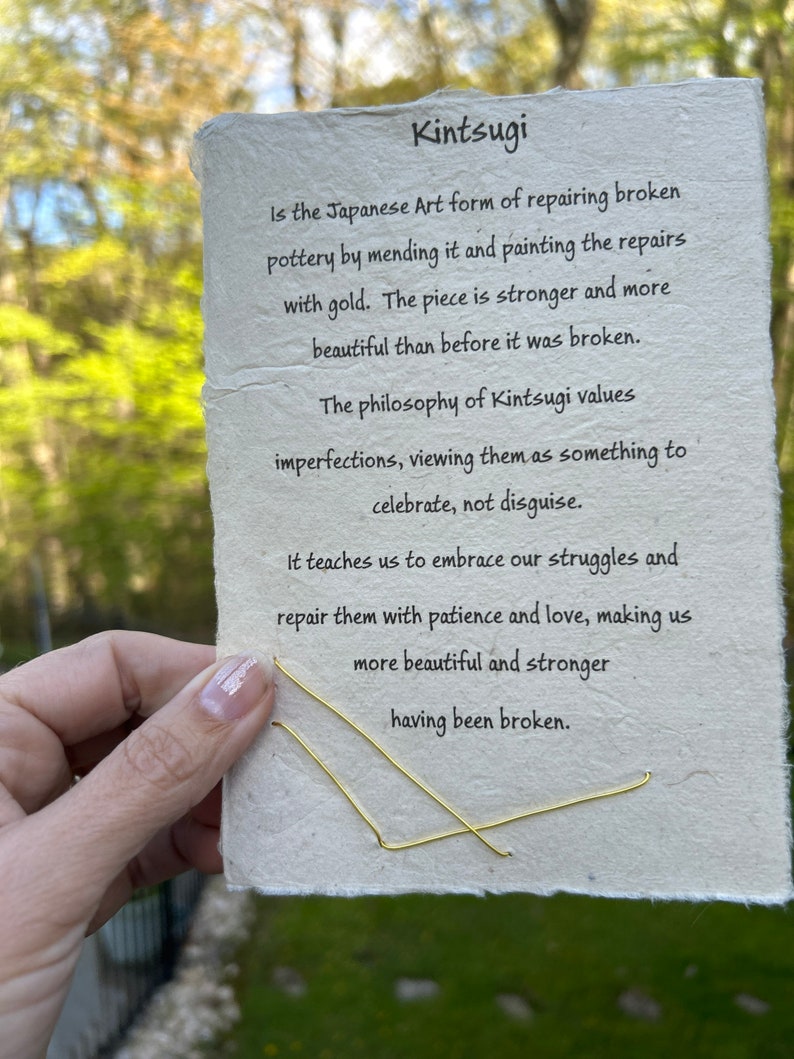 Kintsugi
Is the Japanese Art form of repairing broken
pottery by mending it and painting the repairs
with gold. The piece is stronger and more
beautiful than before it was broken.
The philosophy of Kintsugi values
imperfections, viewing them as something to
celebrate, not disguise.
It teaches us to embrace our struggles and
repair them with patience and love, making us
more beautiful and stronger
having been broken.